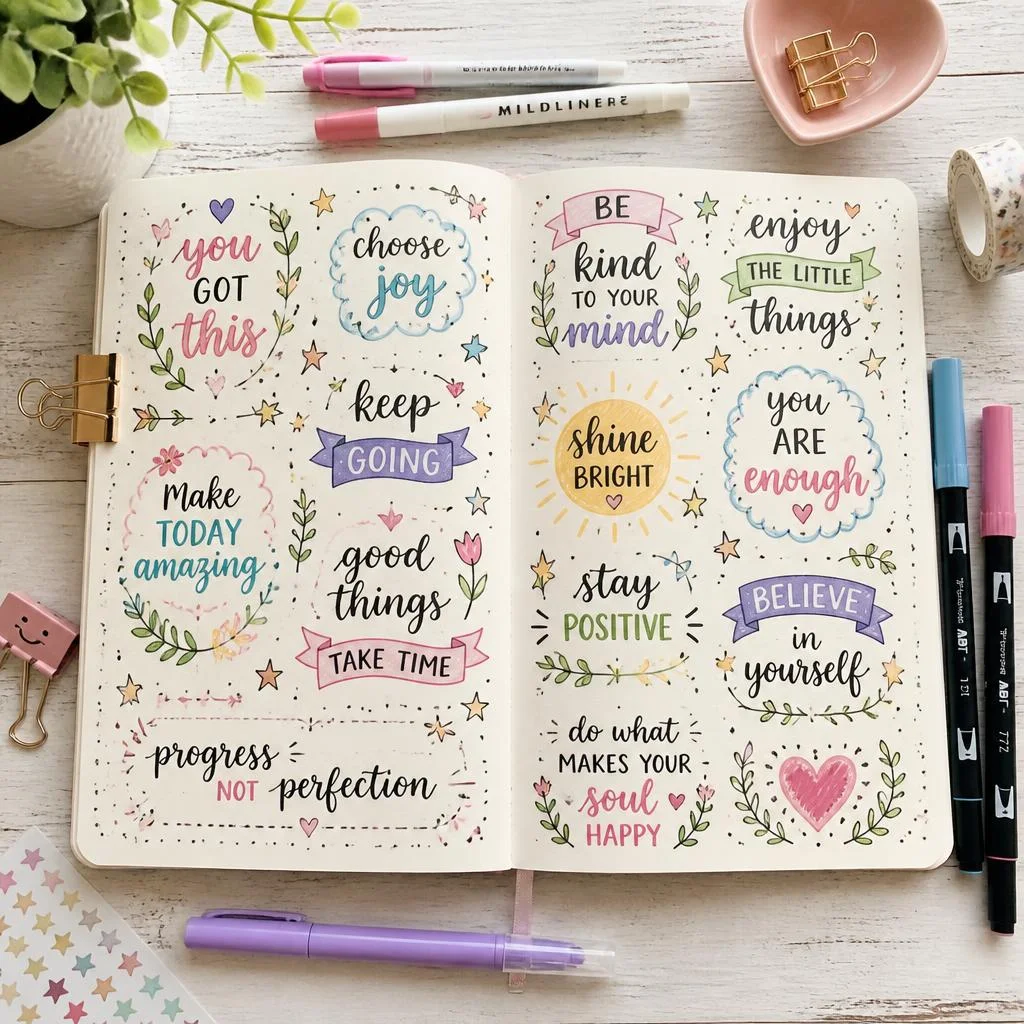 MILDLINER
you
GOT
this
choose
joy
keep
GOING
Make
TODAY
amazing
good
things
TAKE TIME
progress
NOT perfection
BE
kind
TO YOUR
mind
enjoy
THE LITTLE
things
shine
BRIGHT
you
ARE
enough
stay
POSITIVE
BELIEVE
in
yourself
do what
MAKES YOUR
soul
HAPPY
ABT
ABT